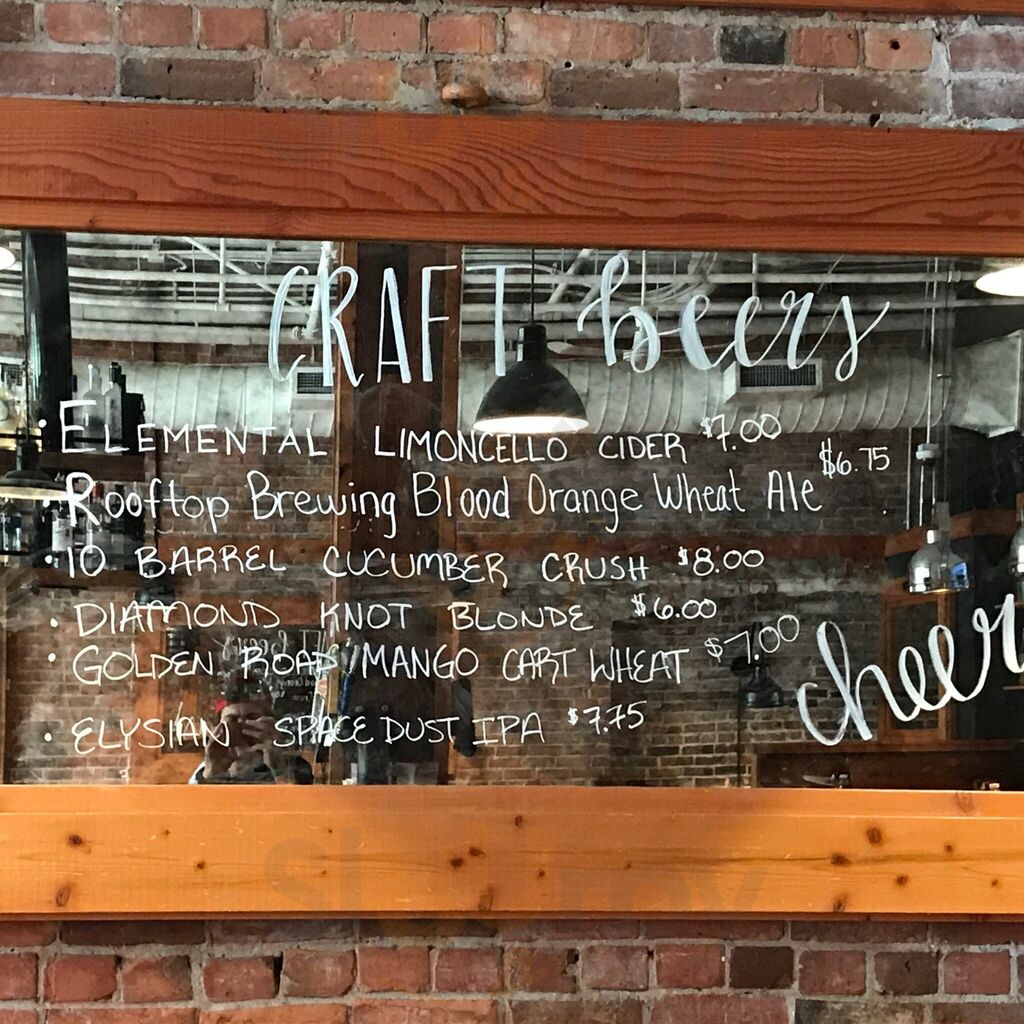 CRAFT beers
• ELEMENTAL LIMONCELLO CIDER $7.00
• Rooftop Brewing Blood Orange Wheat Ale $6.75
• 10 BARREL CUCUMBER CRUSH $8.00
• DIAMOND KNOT BLONDE $6.00
• GOLDEN ROAD MANGO CART WHEAT $7.00
cheer
• ELYSIAN SPACE DUST IPA $7.75